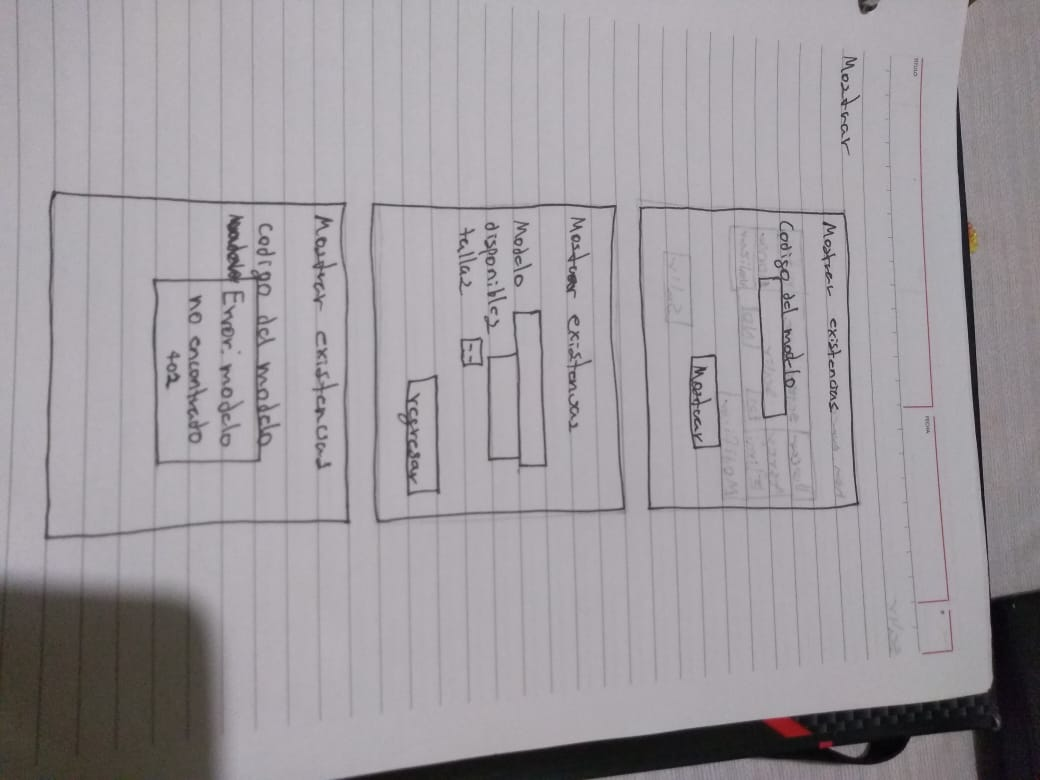 TITULO
FECHA
Mostrar
Mostrar existencias
Codigo del modelo
Mostrar
Mostrar existencias
Modelo
disponibles
tallas
regresar
Mostrar existencias
codigo del modelo
Error: modelo
no encontrado
402